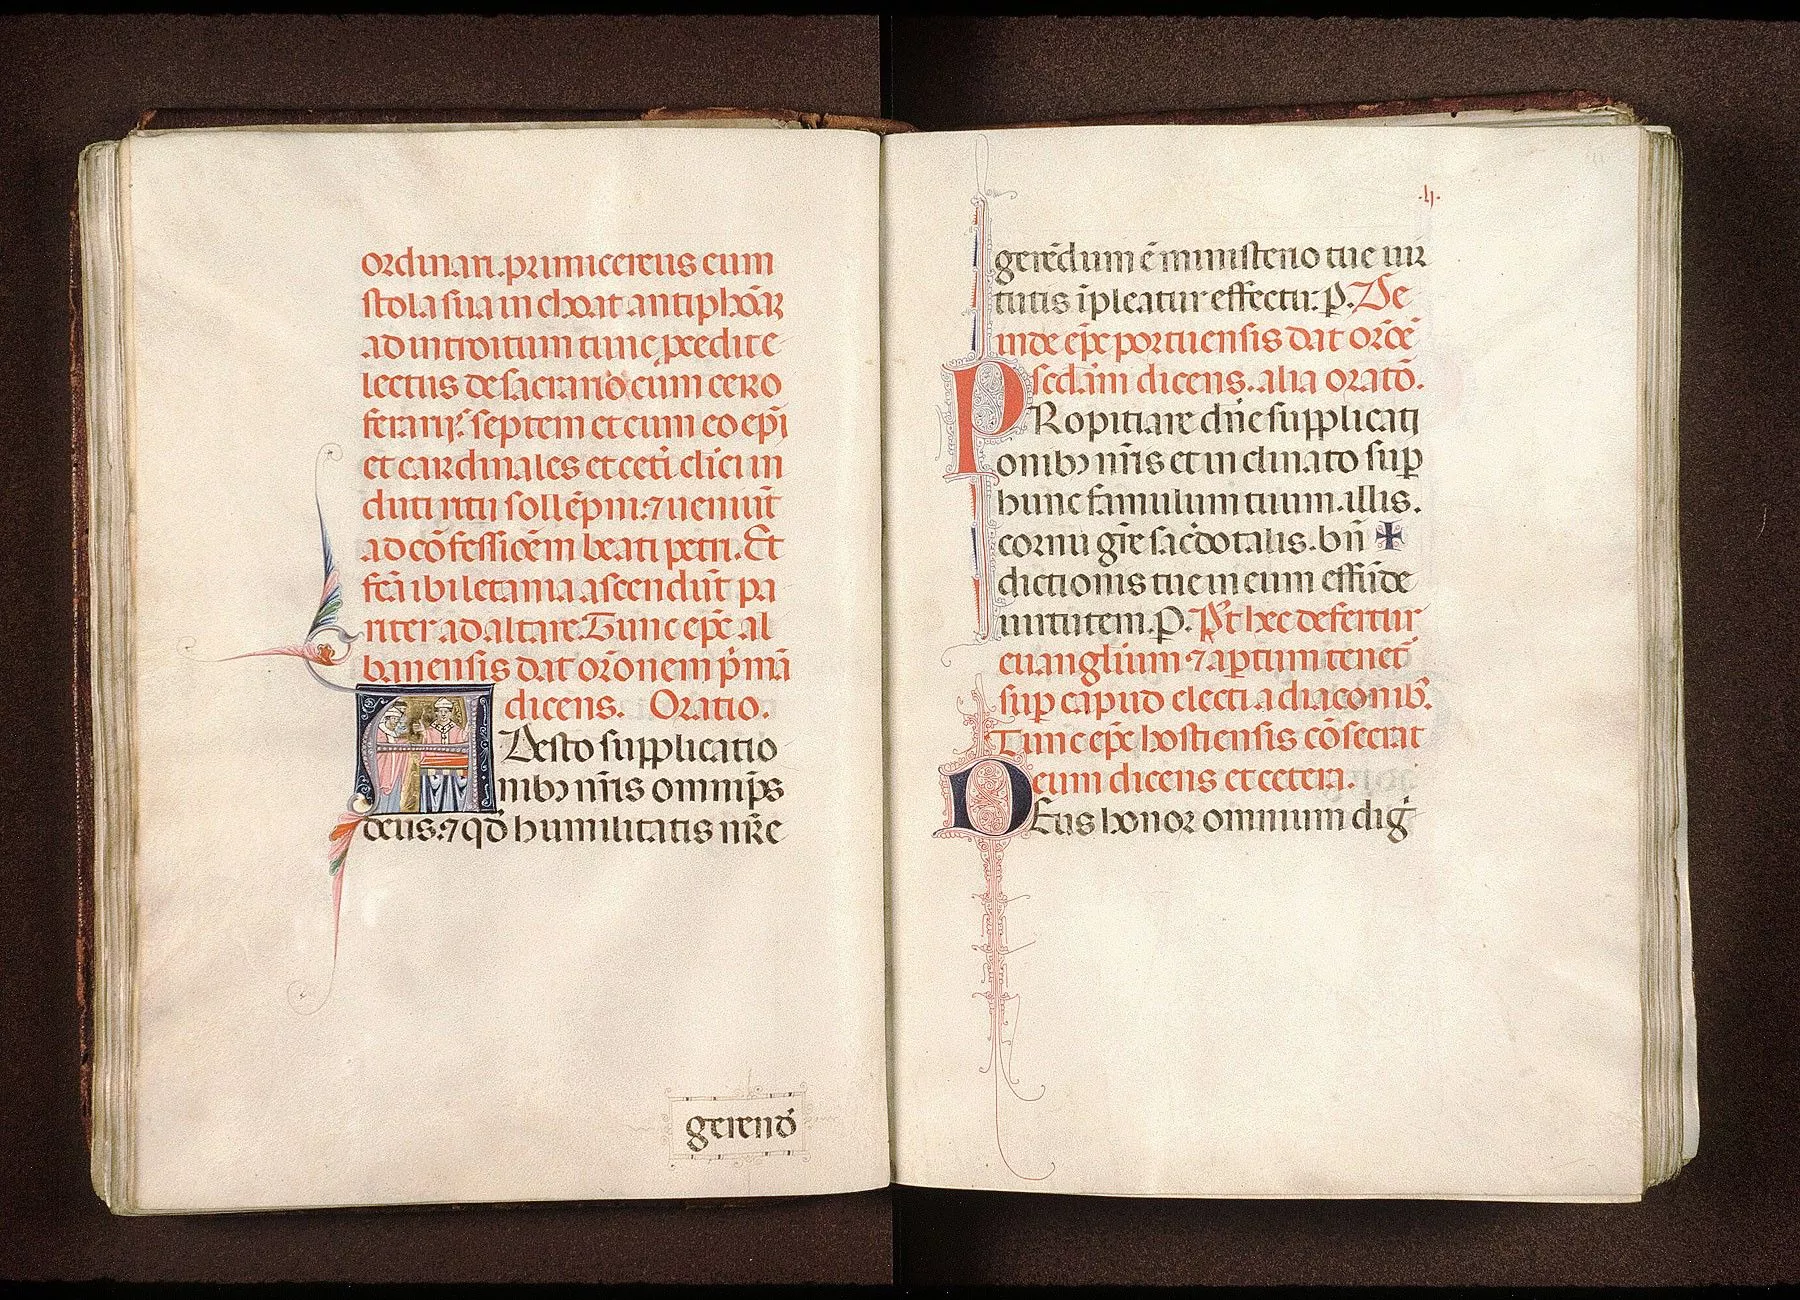 ordinari. primicereus cum
stola sua inchoat antiphoã
ad introitum tunc predite
lectus de sacrario cum cero
ferarijs septem et cum eo epi
et cardinales et ceti clici in
duti ritu sollẽpni. ⁊ ueniũt
ad cõfessiõem beati petri. Et
fcã ibi letania ascendũt pa
riter ad altare. Tunc epc al
banensis dat orõnem pimã
dicens. Oratio.
Adesto supplicatio
nibꝫ nris omnips
deus. ⁊ qd humilitatis nre
gerend
.lj.
gerẽdum ẽ ministerio tue uir
tutis ĩpleatur effectu. p. De
inde epc portuensis dat orõẽ
scdam dicens. alia oratõ.
PRopitiare dñe supplicati
onibꝫ nris et inclinato sup
hunc famulum tuum. illis.
cornu gre sacdotalis. bñ ✠
dictionis tue in eum effũde
uirtutem. p. Pt hec defertur
euanglium ⁊ aptum tenet
sup capud electi a diaconibꝫ.
Tunc epc hostiensis cõsecrat
eum dicens et cetera.
DEus honor omnium dig